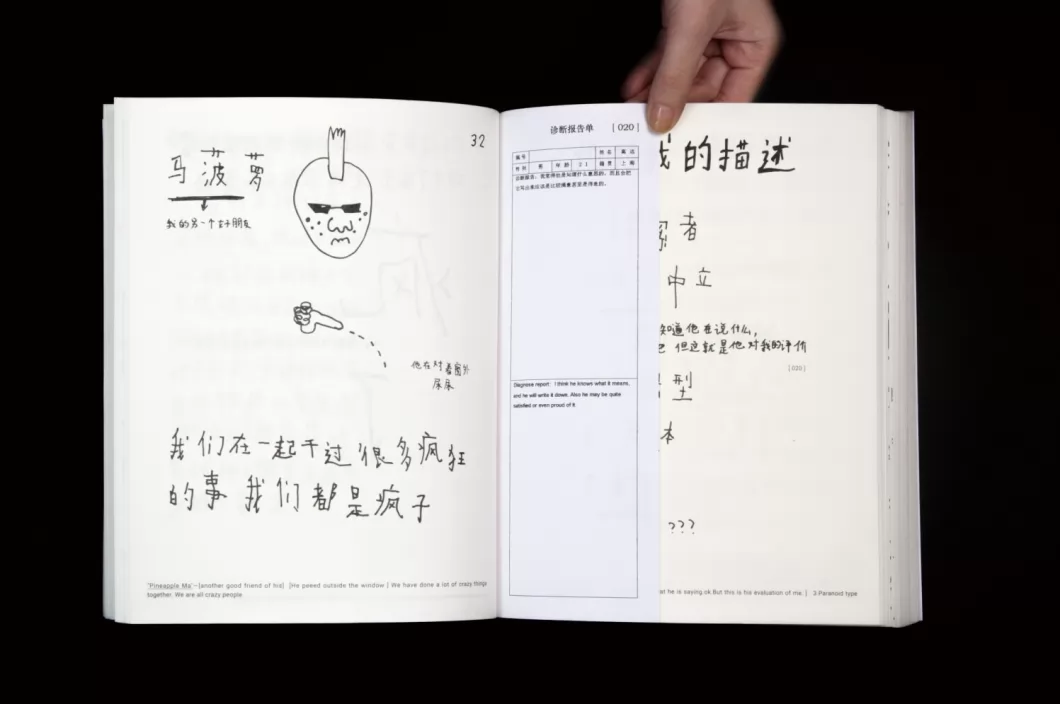 32
马菠萝
我的另一个好朋友
他在对着窗外
尿尿
我们在一起干过很多疯狂
的事 我们都是疯子
"Pineapple Ma"—[another good friend of his] [He peed outside the window] We have done a lot of crazy things
together. We are all crazy people.
诊断报告单 [020]
编号 姓名
性别 男 年龄 21 籍贯 上海
诊断报告：我觉得他是知道什么意思的，而且会把
它写出来应该是比较满意甚至是得意的。
Diagnose report: I think he knows what it means,
and he will write it down. Also he may be quite
satisfied or even proud of it.
我的描述
者
中立
知道他在说什么，
但这就是他对我的评价
[020]
型
本
???
at he is saying ok.But this is his evaluation of me. ] 3.Paranoid type